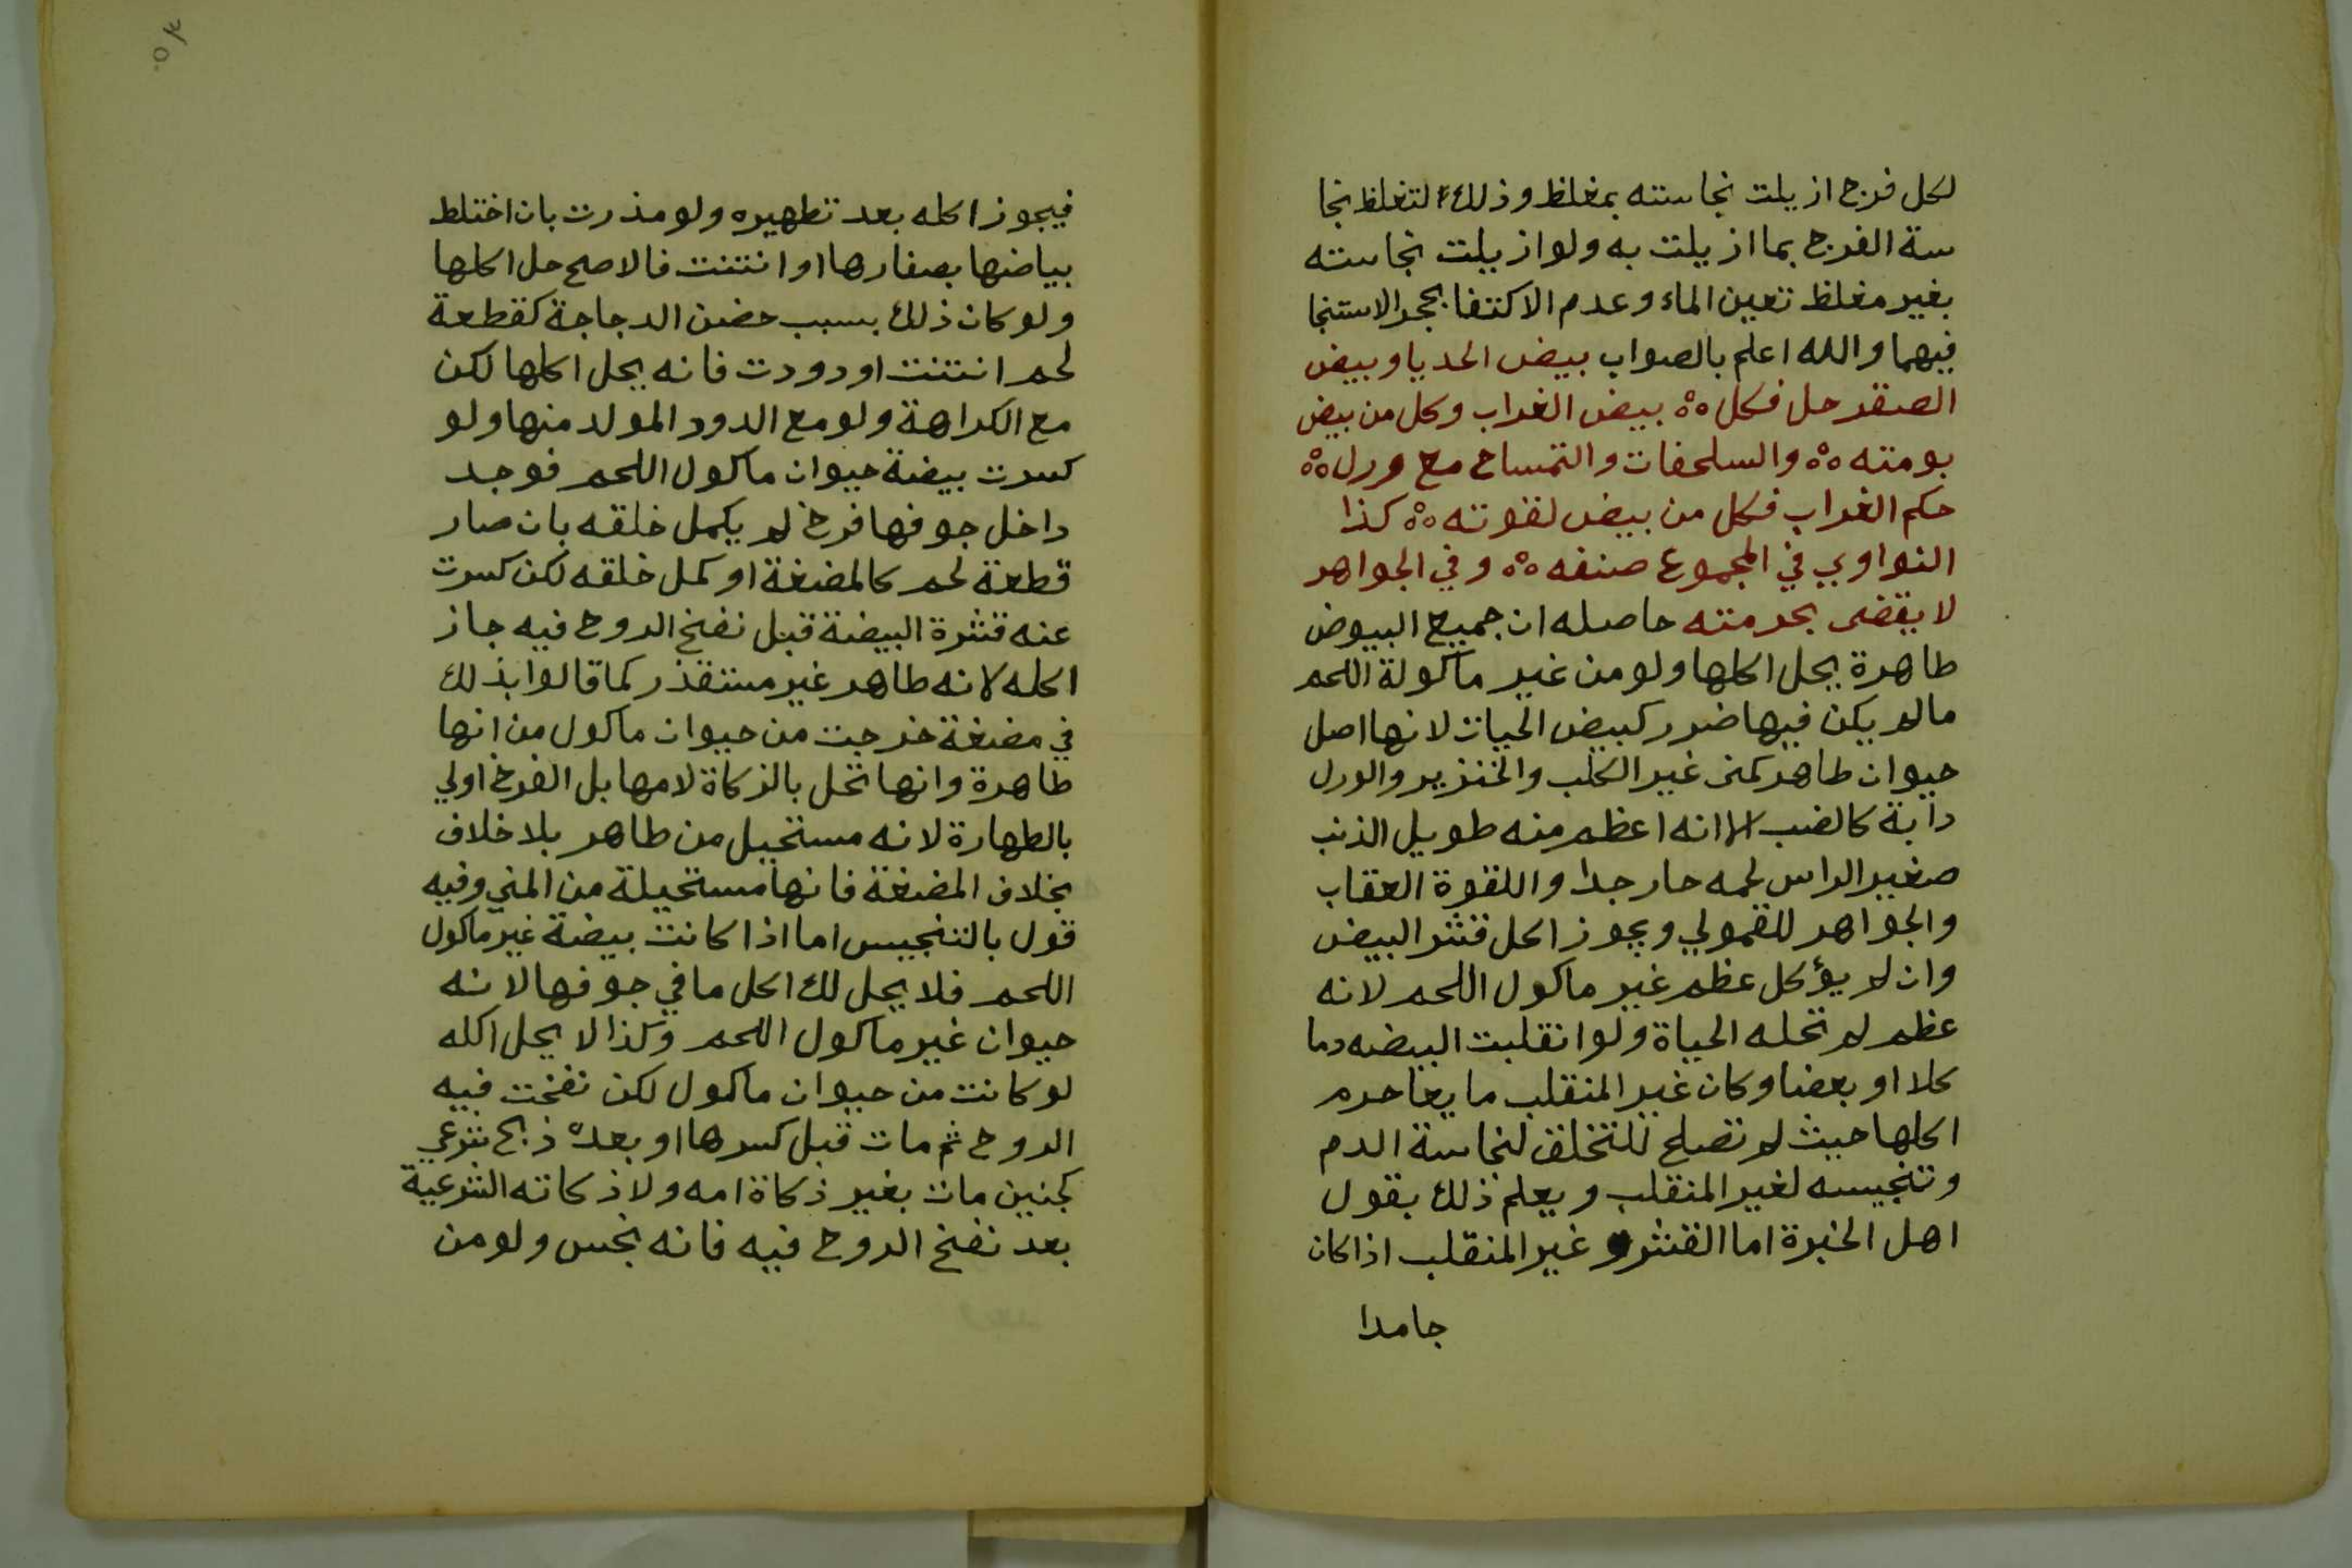 لكل فرج ازيلت نجاسته بمغلظ وذلك لتغلظ نجا
سة الفرج بما ازيلت به ولو ازيلت نجاسته
بغير مغلظ تعين الماء وعدم الاكتفا بحجر الاستنجا
فيهما والله اعلم بالصواب بيض الحديا وبيض
الصقر حل فكل ٥٥ بيض الغراب وكل من بيض
بومته ٥٥ والسلحفات والتمساح مع ورل ٥٥
حكم الغراب فكل من بيض لقوته ٥٥ كذا
النواوي في المجموع صنفه ٥٥ وفي الجواهر
لا يقضى بحرمته حاصله ان جميع البيوض
طاهرة يحل اكلها ولو من غير ماكولة اللحم
مالم يكن فيها ضرر كبيض الحيات لانها اصل
حيوان طاهر كمنى غير الكلب والخنزير والورل
دابة كالضب الا انه اعظم منه طويل الذنب
صغير الراس لحمه حار جدا واللقوة العقاب
والجواهر للقمولي ويجوز اكل قشر البيض
وان لم يؤكل عظم غير ماكول اللحم لانه
عظم لم تحله الحياة ولو انقلبت البيضه دما
كلا او بعضا وكان غير المنقلب مايعا حرم
اكلها حيث لم تصلح للتخلق لنجاسة الدم
وتنجيسه لغير المنقلب ويعلم ذلك بقول
اهل الخبرة اما القشر و غير المنقلب اذا كان
جامدا
فيجوز اكله بعد تطهيره ولو مذرت بان اختلط
بياضها بصفارها او انتنت فالاصح حل اكلها
ولو كان ذلك بسبب حضن الدجاجة كقطعة
لحم انتنت او دودت فانه يحل اكلها لكن
مع الكراهة ولو مع الدود المولد منها ولو
كسرت بيضة حيوان ماكول اللحم فوجد
داخل جوفها فرخ لم يكمل خلقه بان صار
قطعة لحم كالمضغة او كمل خلقه لكن كسرت
عنه قشرة البيضة قبل نفخ الروح فيه جاز
اكله لانه طاهر غير مستقذر كما قالوا بذلك
في مضغة خرجت من حيوان ماكول من انها
طاهرة وانها تحل بالزكاة لامها بل الفرخ اولي
بالطهارة لانه مستحيل من طاهر بلا خلاف
بخلاف المضغة فانها مستحيلة من المني وفيه
قول بالتنجيس اما اذا كانت بيضة غير ماكول
اللحم فلا يحل لك اكل ما في جوفها لانه
حيوان غير ماكول اللحم وكذا لا يحل اكله
لو كانت من حيوان ماكول لكن نفخت فيه
الروح ثم مات قبل كسرها او بعده ذبح شرعي
كجنين مات بغير ذكاة امه ولا ذكاته الشرعية
بعد نفخ الروح فيه فانه نجس ولو من